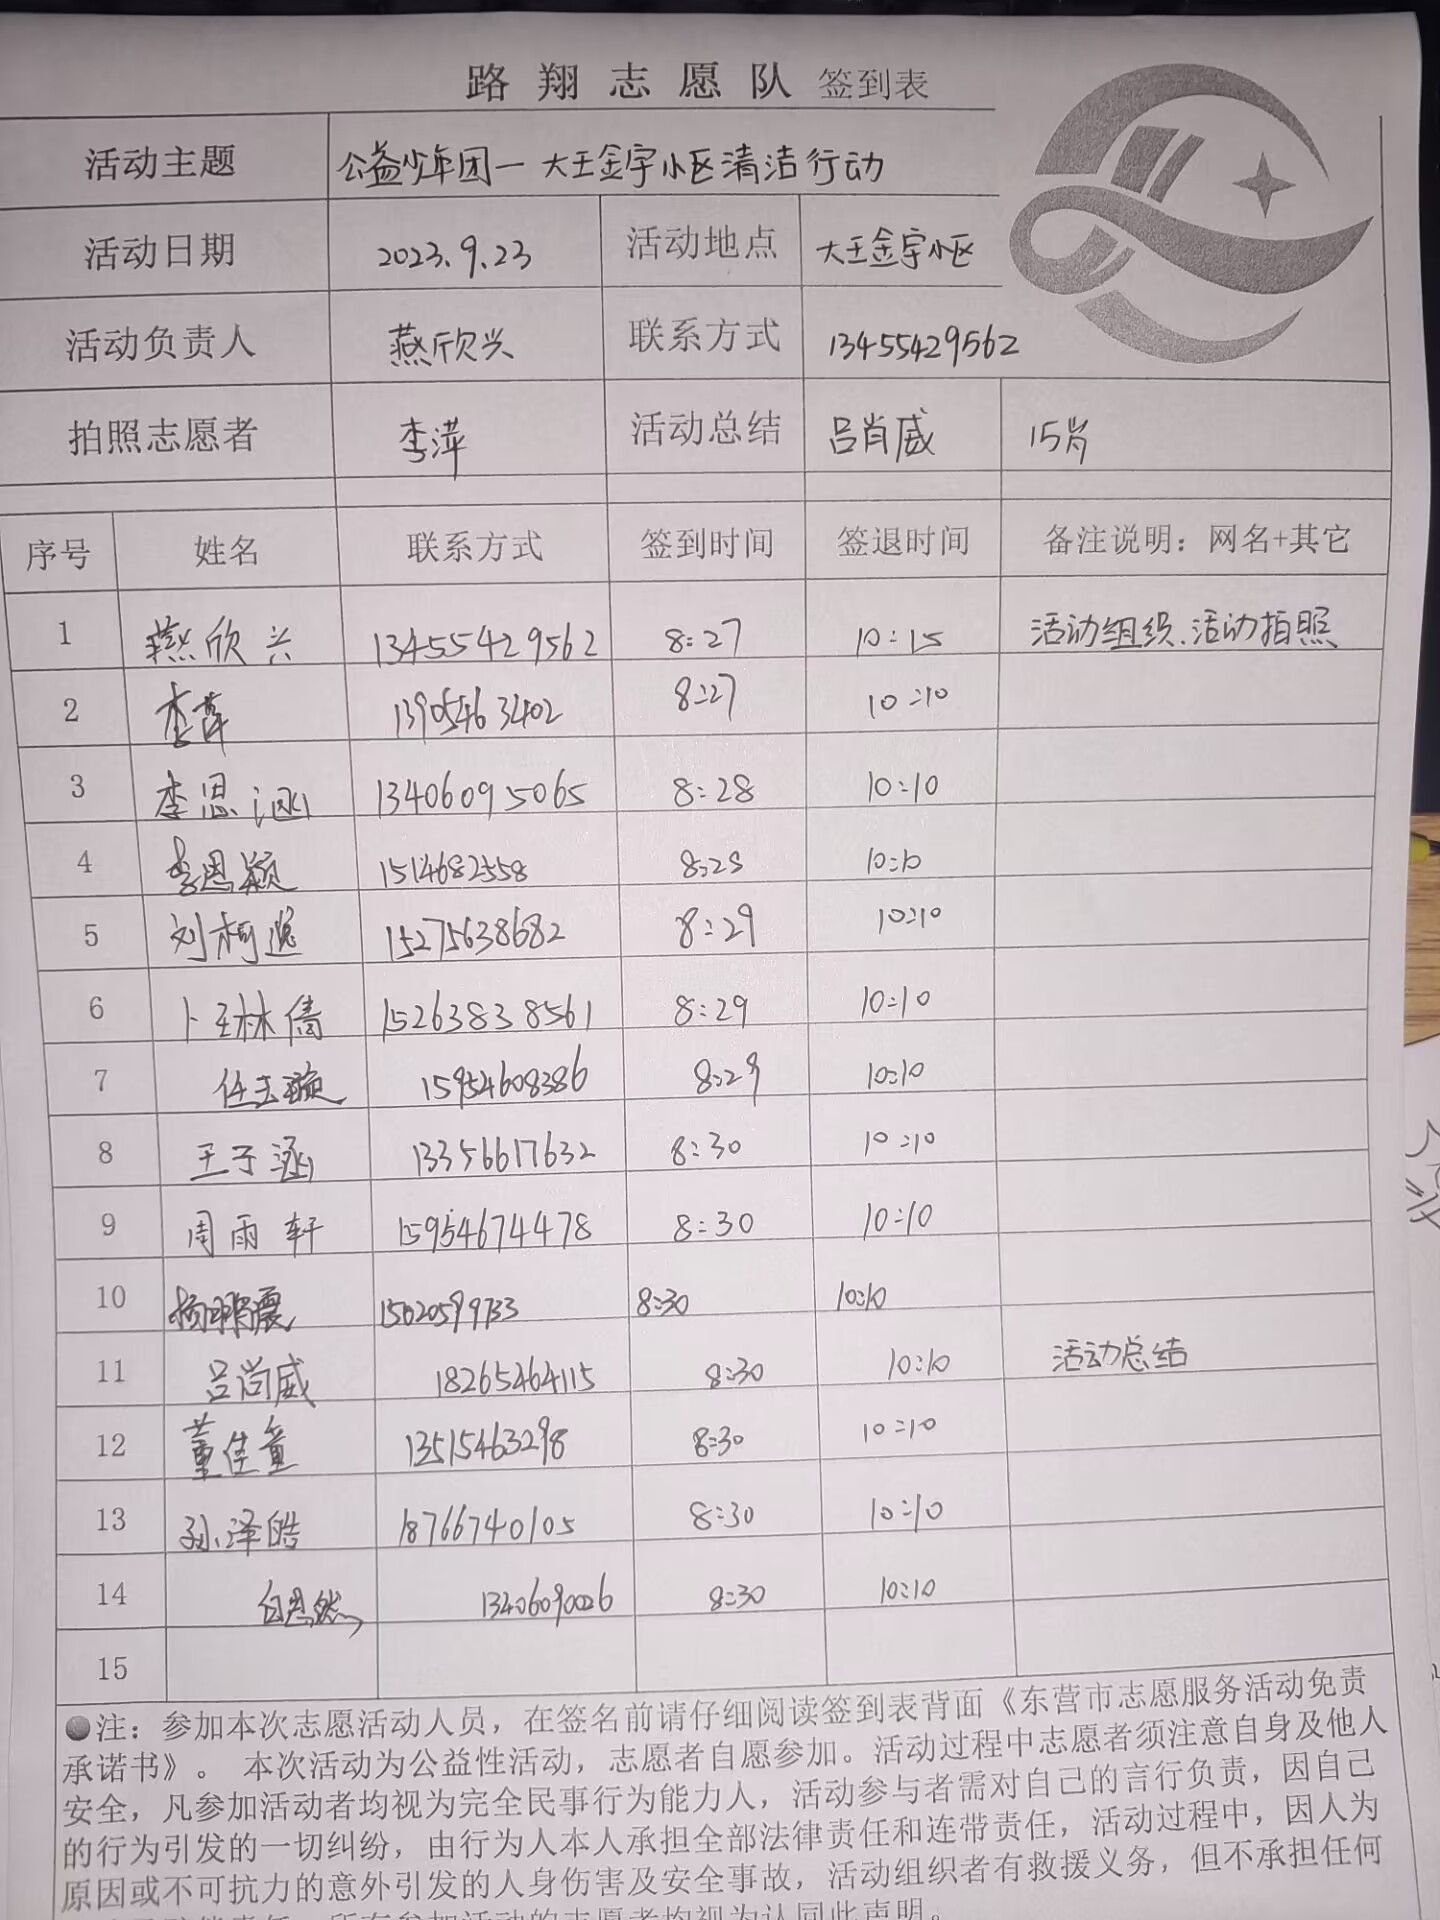 路翔志愿队 签到表
活动主题 公益少年团一大王金宇小区清洁行动
活动日期 2023.9.23 活动地点 大王金宇小区
活动负责人 燕欣兴 联系方式 13455429562
拍照志愿者 李萍 活动总结 吕肖威 15岁
序号 姓名 联系方式 签到时间 签退时间 备注说明：网名+其它
1 燕欣兴 13455429562 8:27 10:15 活动组织、活动拍照
2 李萍 13905463402 8:27 10:10
3 李思涵 13406095065 8:28 10:10
4 李恩颖 8:28 10:10
5 刘柯逸 15275638682 8:29 10:10
6 卜王林倩 15263838561 8:29 10:10
7 任玉璇 15954608386 8:29 10:10
8 王子涵 13356617632 8:30 10:10
9 周雨轩 15954674478 8:30 10:10
10 8:30 10:10
11 吕尚威 18265464115 8:30 10:10 活动总结
12 董佳童 13515463298 8:30 10:10
13 孙泽皓 18766740105 8:30 10:10
14 8:30 10:10
15
●注：参加本次志愿活动人员，在签名前请仔细阅读签到表背面《东营市志愿服务活动免责
承诺书》。 本次活动为公益性活动，志愿者自愿参加。活动过程中志愿者须注意自身及他人
安全，凡参加活动者均视为完全民事行为能力人，活动参与者需对自己的言行负责，因自己
的行为引发的一切纠纷，由行为人本人承担全部法律责任和连带责任，活动过程中，因人为
原因或不可抗力的意外引发的人身伤害及安全事故，活动组织者有救援义务，但不承担任何
所有参加活动的志愿者均视为认同此声明。